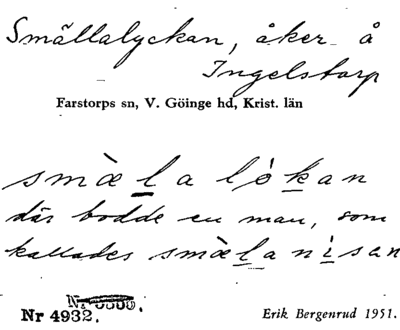 Smällalyckan, åker å
Ingelstorp
Farstorps sn, V. Göinge hd, Krist. län
smæ̀la lò̀kan
där bodde en man, som
kallades smæ̀lanìsan
Nr 4932.
Erik Bergenrud 1951.